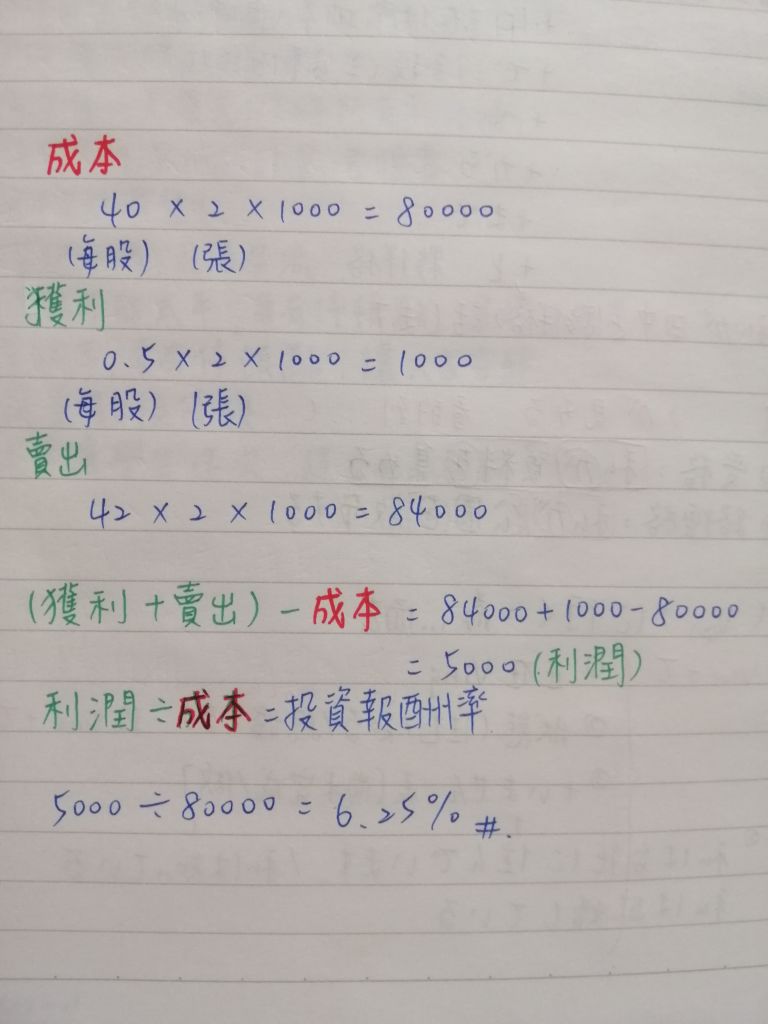 成本
40 × 2 × 1000 = 80000
(每股) (張)
獲利
0.5 × 2 × 1000 = 1000
(每股) (張)
賣出
42 × 2 × 1000 = 84000
(獲利+賣出) - 成本 = 84000+1000-80000
= 5000 (利潤)
利潤÷成本=投資報酬率
5000 ÷ 80000 = 6.25% #.